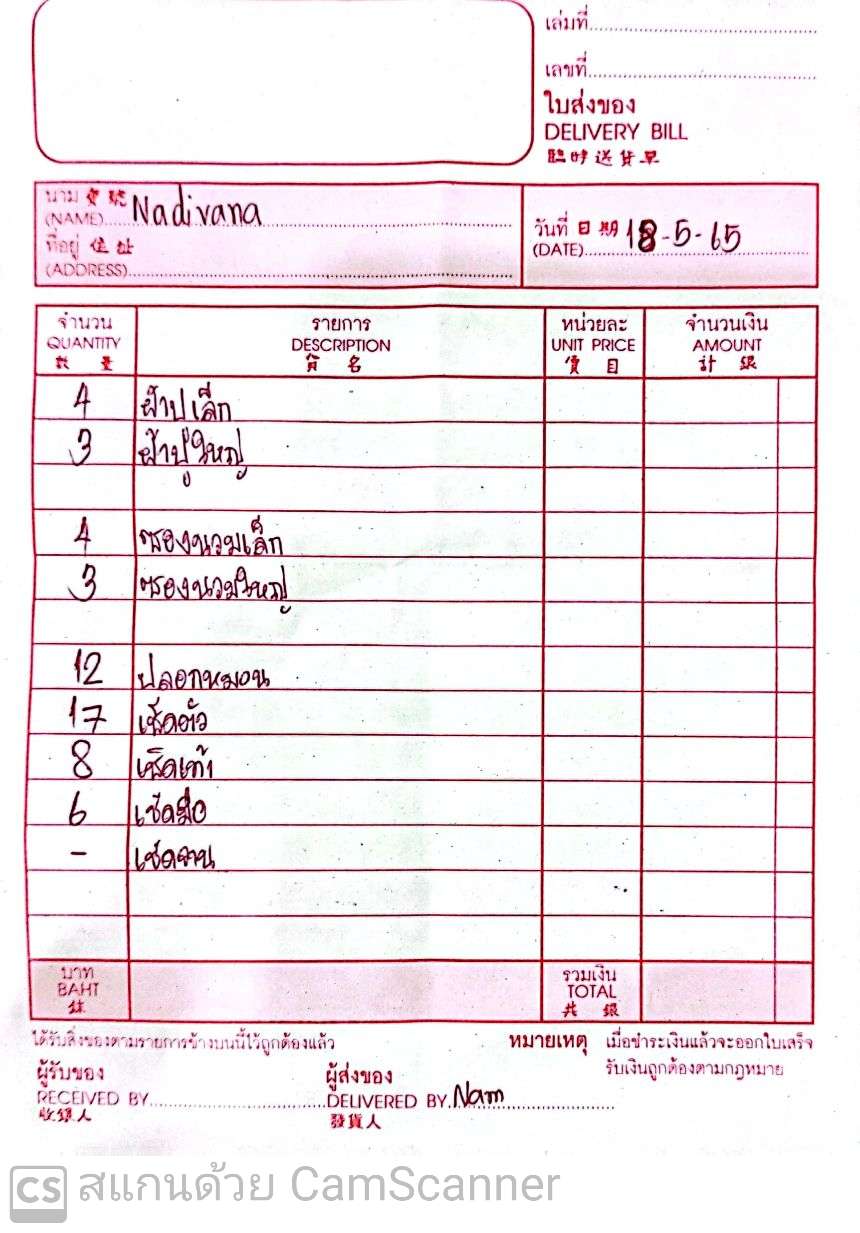 เล่มที่
เลขที่
ใบส่งของ
DELIVERY BILL
臨時送貨單
นาม 寶號
(NAME) Nadivana
ที่อยู่ 住址
(ADDRESS)
วันที่ 日期 18-5-65
(DATE)
จำนวน รายการ หน่วยละ จำนวนเงิน
QUANTITY DESCRIPTION UNIT PRICE AMOUNT
數量 貨名 價目 計銀
4 ผ้าปูเล็ก
3 ผ้าปูใหญ่
4 ซองนวมเล็ก
3 ซองนวมใหญ่
12 ปลอกหมอน
17 เช็ดตัว
8 เช็ดเท้า
6 เช็ดมือ
- เช็ดจาน
บาท รวมเงิน
BAHT TOTAL
銖 共銀
ได้รับสิ่งของตามรายการข้างบนนี้ไว้ถูกต้องแล้ว หมายเหตุ เมื่อชำระเงินแล้วจะออกใบเสร็จ
รับเงินถูกต้องตามกฎหมาย
ผู้รับของ ผู้ส่งของ
RECEIVED BY DELIVERED BY Nam
收銀人 發貨人
CS สแกนด้วย CamScanner